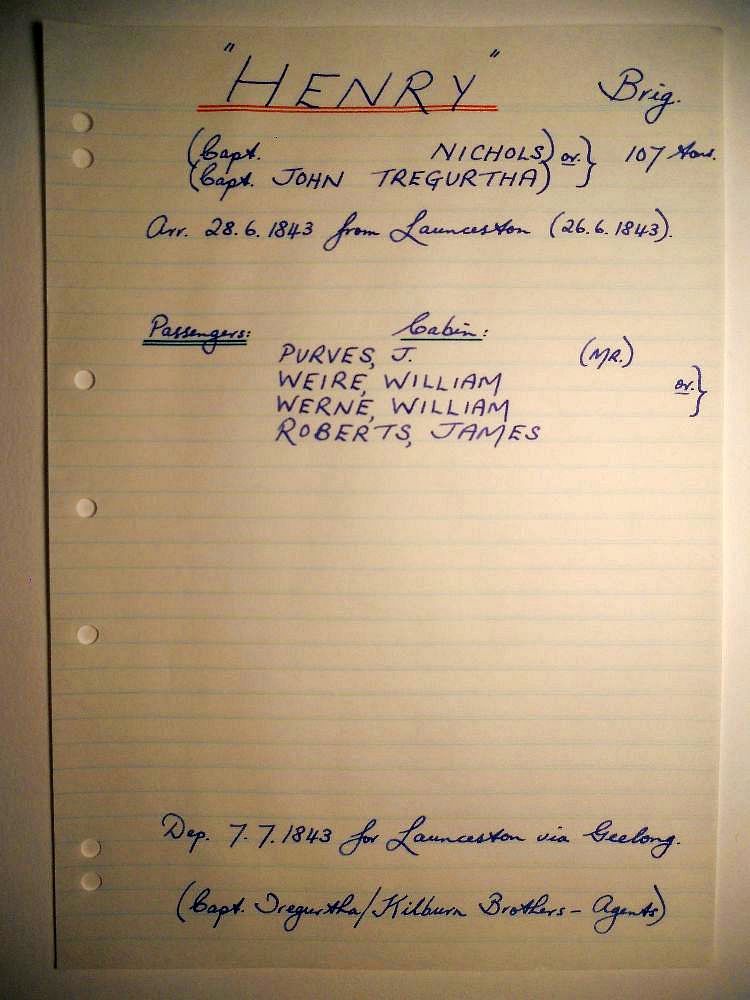 "HENRY" Brig.
(Capt. NICHOLS) or } 107 tons.
(Capt. JOHN TREGURTHA)
Arr. 28.6.1843 from Launceston (26.6.1843).
Passengers: Cabin:
PURVES, J. (MR.)
WEIRE, WILLIAM or }
WERNE, WILLIAM
ROBERTS, JAMES
Dep. 7.7.1843 for Launceston via Geelong.
(Capt. Tregurtha/Kilburn Brothers - Agents)